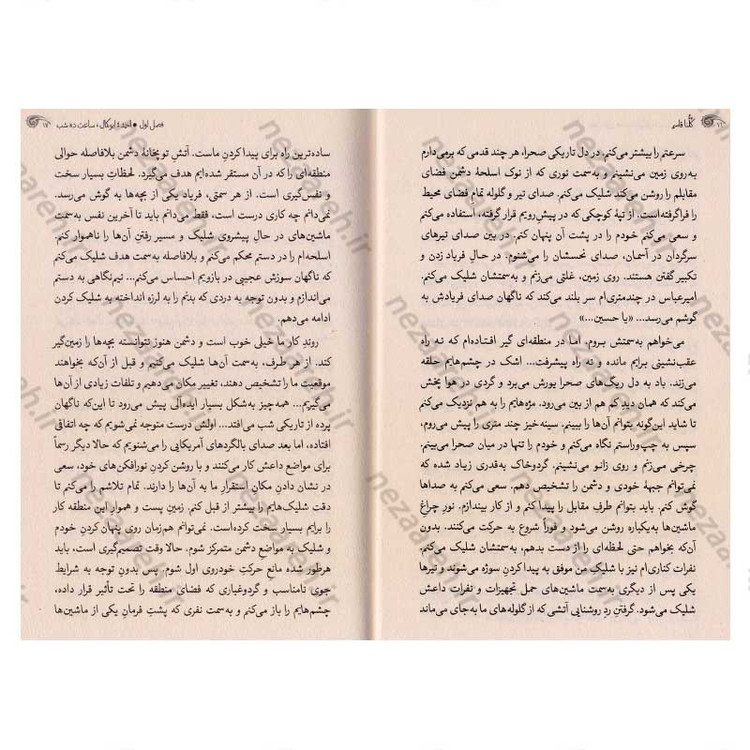 ۱۶
سرعتم را بیشتر می‌کنم. در دل تاریکی صحرا، هر چند قدمی که برمی‌دارم
به‌روی زمین می‌نشینم و به‌سمت نوری که از نوک اسلحهٔ دشمن فضای
مقابلم را روشن می‌کند شلیک می‌کنم. صدای تیر و گلوله تمام فضای محیط
را فراگرفته‌است. از تپهٔ کوچکی که در پیشِ‌رویم قرار گرفته، استفاده می‌کنم
و سعی می‌کنم خودم را در پشت آن پنهان کنم. در بین صدای تیرهای
سرگردان در آسمان، صدای نحسشان را می‌شنوم. در حالِ فریاد زدن و
تکبیر گفتن هستند. روی زمین، غلتی می‌زنم و به‌سمتشان شلیک می‌کنم.
امیرعباس در چندمتری‌ام سر بلند می‌کند که ناگهان صدای فریادش به
گوشم می‌رسد... «یا حسین...»
می‌خواهم به‌سمتش بروم، اما در منطقه‌ای گیر افتاده‌ام که نه راه
عقب‌نشینی برایم مانده و نه راه پیشرفت... اشک در چشم‌هایم حلقه
می‌زند. باد به دل ریگ‌های صحرا یورش می‌برد و گردی در هوا پخش
می‌کند که همان دیدِ کم هم از بین می‌رود. مژه‌هایم را به هم نزدیک می‌کنم
تا شاید این‌گونه بتوانم آن‌ها را ببینم. سینه‌خیز چند متری را پیش می‌روم،
سپس به چپ‌وراستم نگاه می‌کنم و خودم را تنها در میان صحرا می‌بینم.
چرخی می‌زنم و روی زانو می‌نشینم. گردوخاک به‌قدری زیاد شده که
نمی‌توانم جبههٔ خودی و دشمن را تشخیص دهم. سعی می‌کنم به صداها
گوش کنم. باید بتوانم طرفِ مقابلم را پیدا کنم و از کار بیندازم. نورِ چراغِ
ماشین‌ها به‌یکباره روشن می‌شود و فوراً شروع به حرکت می‌کنند. بدون
آن‌که بخواهم حتی لحظه‌ای را از دست بدهم، به‌سمتشان شلیک می‌کنم.
نفرات کناری‌ام نیز با شلیک من موفق به پیدا کردنِ سوژه می‌شوند و تیرها
یکی پس از دیگری به‌سمت ماشین‌های حمل تجهیزات و نفرات داعش
شلیک می‌شود. گرفتنِ ردِ روشنایی آتشی که از گلوله‌های ما به‌جای می‌ماند
فصل اول • ساعت ده شب ۱۷
ساده‌ترین راه برای پیدا کردنِ ماست. آتشِ توپخانهٔ دشمن بلافاصله حوالی
منطقه‌ای را که در آن مستقر شده‌ایم هدف می‌گیرد. لحظاتِ بسیار سخت
و نفس‌گیری است. از هر سمتی، فریاد یکی از بچه‌ها به گوش می‌رسد.
نمی‌دانم چه کاری درست است، فقط می‌دانم باید تا آخرین نفس به‌سمت
ماشین‌های در حالِ پیشروی شلیک و مسیر رفتنِ آن‌ها را ناهموار کنم.
اسلحه‌ام را در دستم محکم می‌کنم و بلافاصله به‌سمت هدف شلیک می‌کنم
که ناگهان سوزش عجیبی در بازویم احساس می‌کنم... نیم‌نگاهی به دستم
می‌اندازم و بدون توجه به دردی که بدنم را به لرزه انداخته به شلیک کردن
ادامه می‌دهم.
روندِ کار ما خیلی خوب است و دشمن هنوز نتوانسته بچه‌ها را زمین‌گیر
کند. از هر طرف، به‌سمت آن‌ها شلیک می‌کنیم و قبل از آن‌که بخواهند
موقعیت ما را تشخیص دهند، تغییر مکان می‌دهیم و تلفات زیادی از آن‌ها
می‌گیریم... همه‌چیز به‌شکل بسیار ایده‌آلی پیش می‌رود تا این‌که ناگهان
پرده از تاریکی شب می‌افتد... اولش درست متوجه نمی‌شویم که چه اتفاقی
افتاده، اما بعد صدای بالگردهای آمریکایی را می‌شنویم که حالا دیگر رسماً
برای مواضع داعش کار می‌کنند و با روشن کردنِ نورافکن‌های خود، سعی
در نشان دادنِ مکانِ استقرارِ ما به آن‌ها را دارند. تمام تلاشم را می‌کنم تا
دقت شلیک‌هایم را بیشتر از قبل کنم. زمینِ پست و هموار این منطقه کار
را برایم بسیار سخت کرده‌است. نمی‌توانم هم‌زمان روی پنهان کردنِ خودم
و شلیک به مواضعِ دشمن متمرکز شوم. حالا وقت تصمیم‌گیری است، باید
هرطور شده مانعِ حرکتِ خودروی اول شوم. پس بدونِ توجه به شرایط
جوی نامناسب و گردوغباری که فضای منطقه را تحت تأثیر قرار داده،
چشم‌هایم را باز می‌کنم و به‌سمت نفری که پشتِ فرمانِ یکی از ماشین‌ها
nezaareh.ir